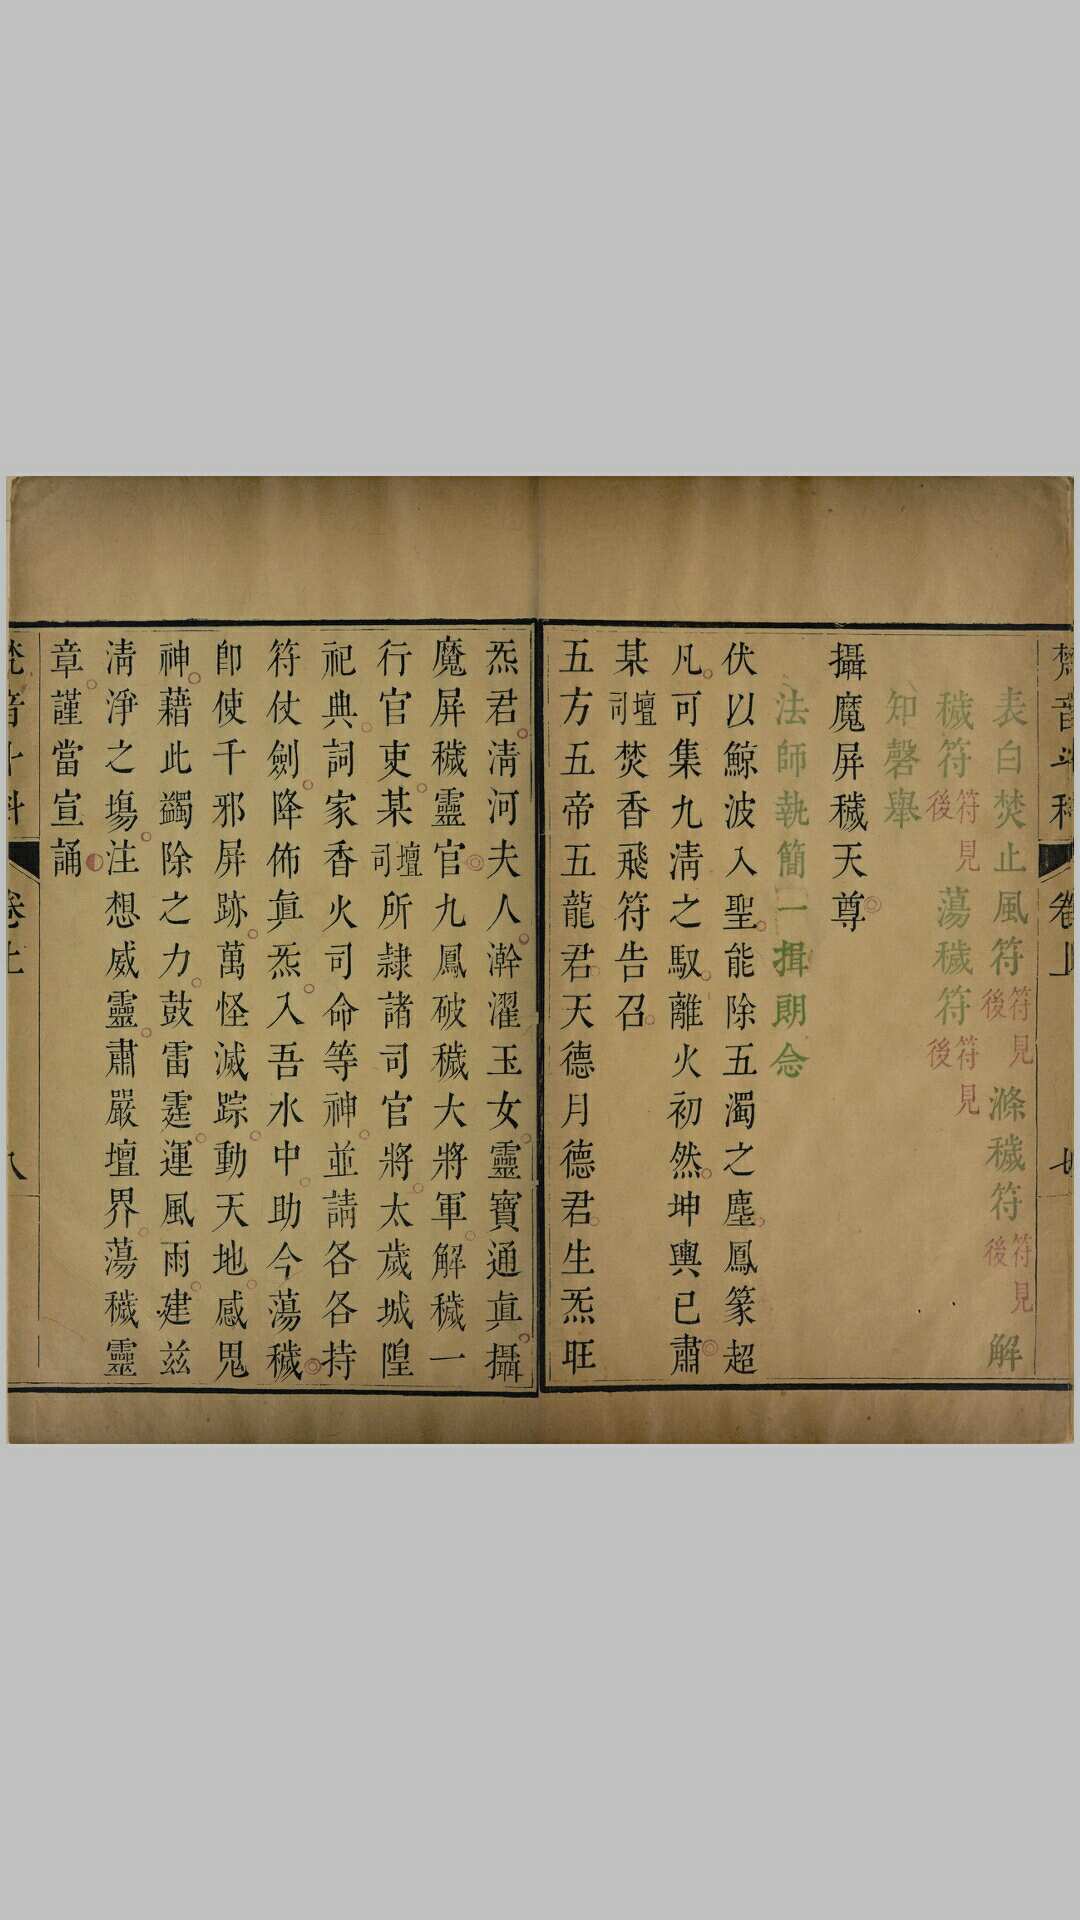 梵音斗科 卷上 七
表白焚止風符符見後 滌穢符符見後 解
穢符符見後 蕩穢符符見後
知磬舉
攝魔屏穢天尊
法師執簡一揖朗念
伏以鯨波入聖能除五濁之塵鳳篆超
凡可集九清之馭離火初然坤輿已肅
某壇司焚香飛符告召
五方五帝五龍君天德月德君生炁旺
炁君清河夫人澣濯玉女靈寶通眞攝
魔屏穢靈官九鳳破穢大將軍解穢一
行官吏某壇司所隷諸司官將太歲城隍
祀典詞家香火司命等神並請各各持
符仗劍降佈眞炁入吾水中助今蕩穢
卽使千邪屏跡萬怪滅踪動天地感鬼
神藉此蠲除之力鼓雷霆運風雨建兹
清淨之塲注想威靈肅嚴壇界蕩穢靈
章謹當宣誦
梵音斗科 卷上 八